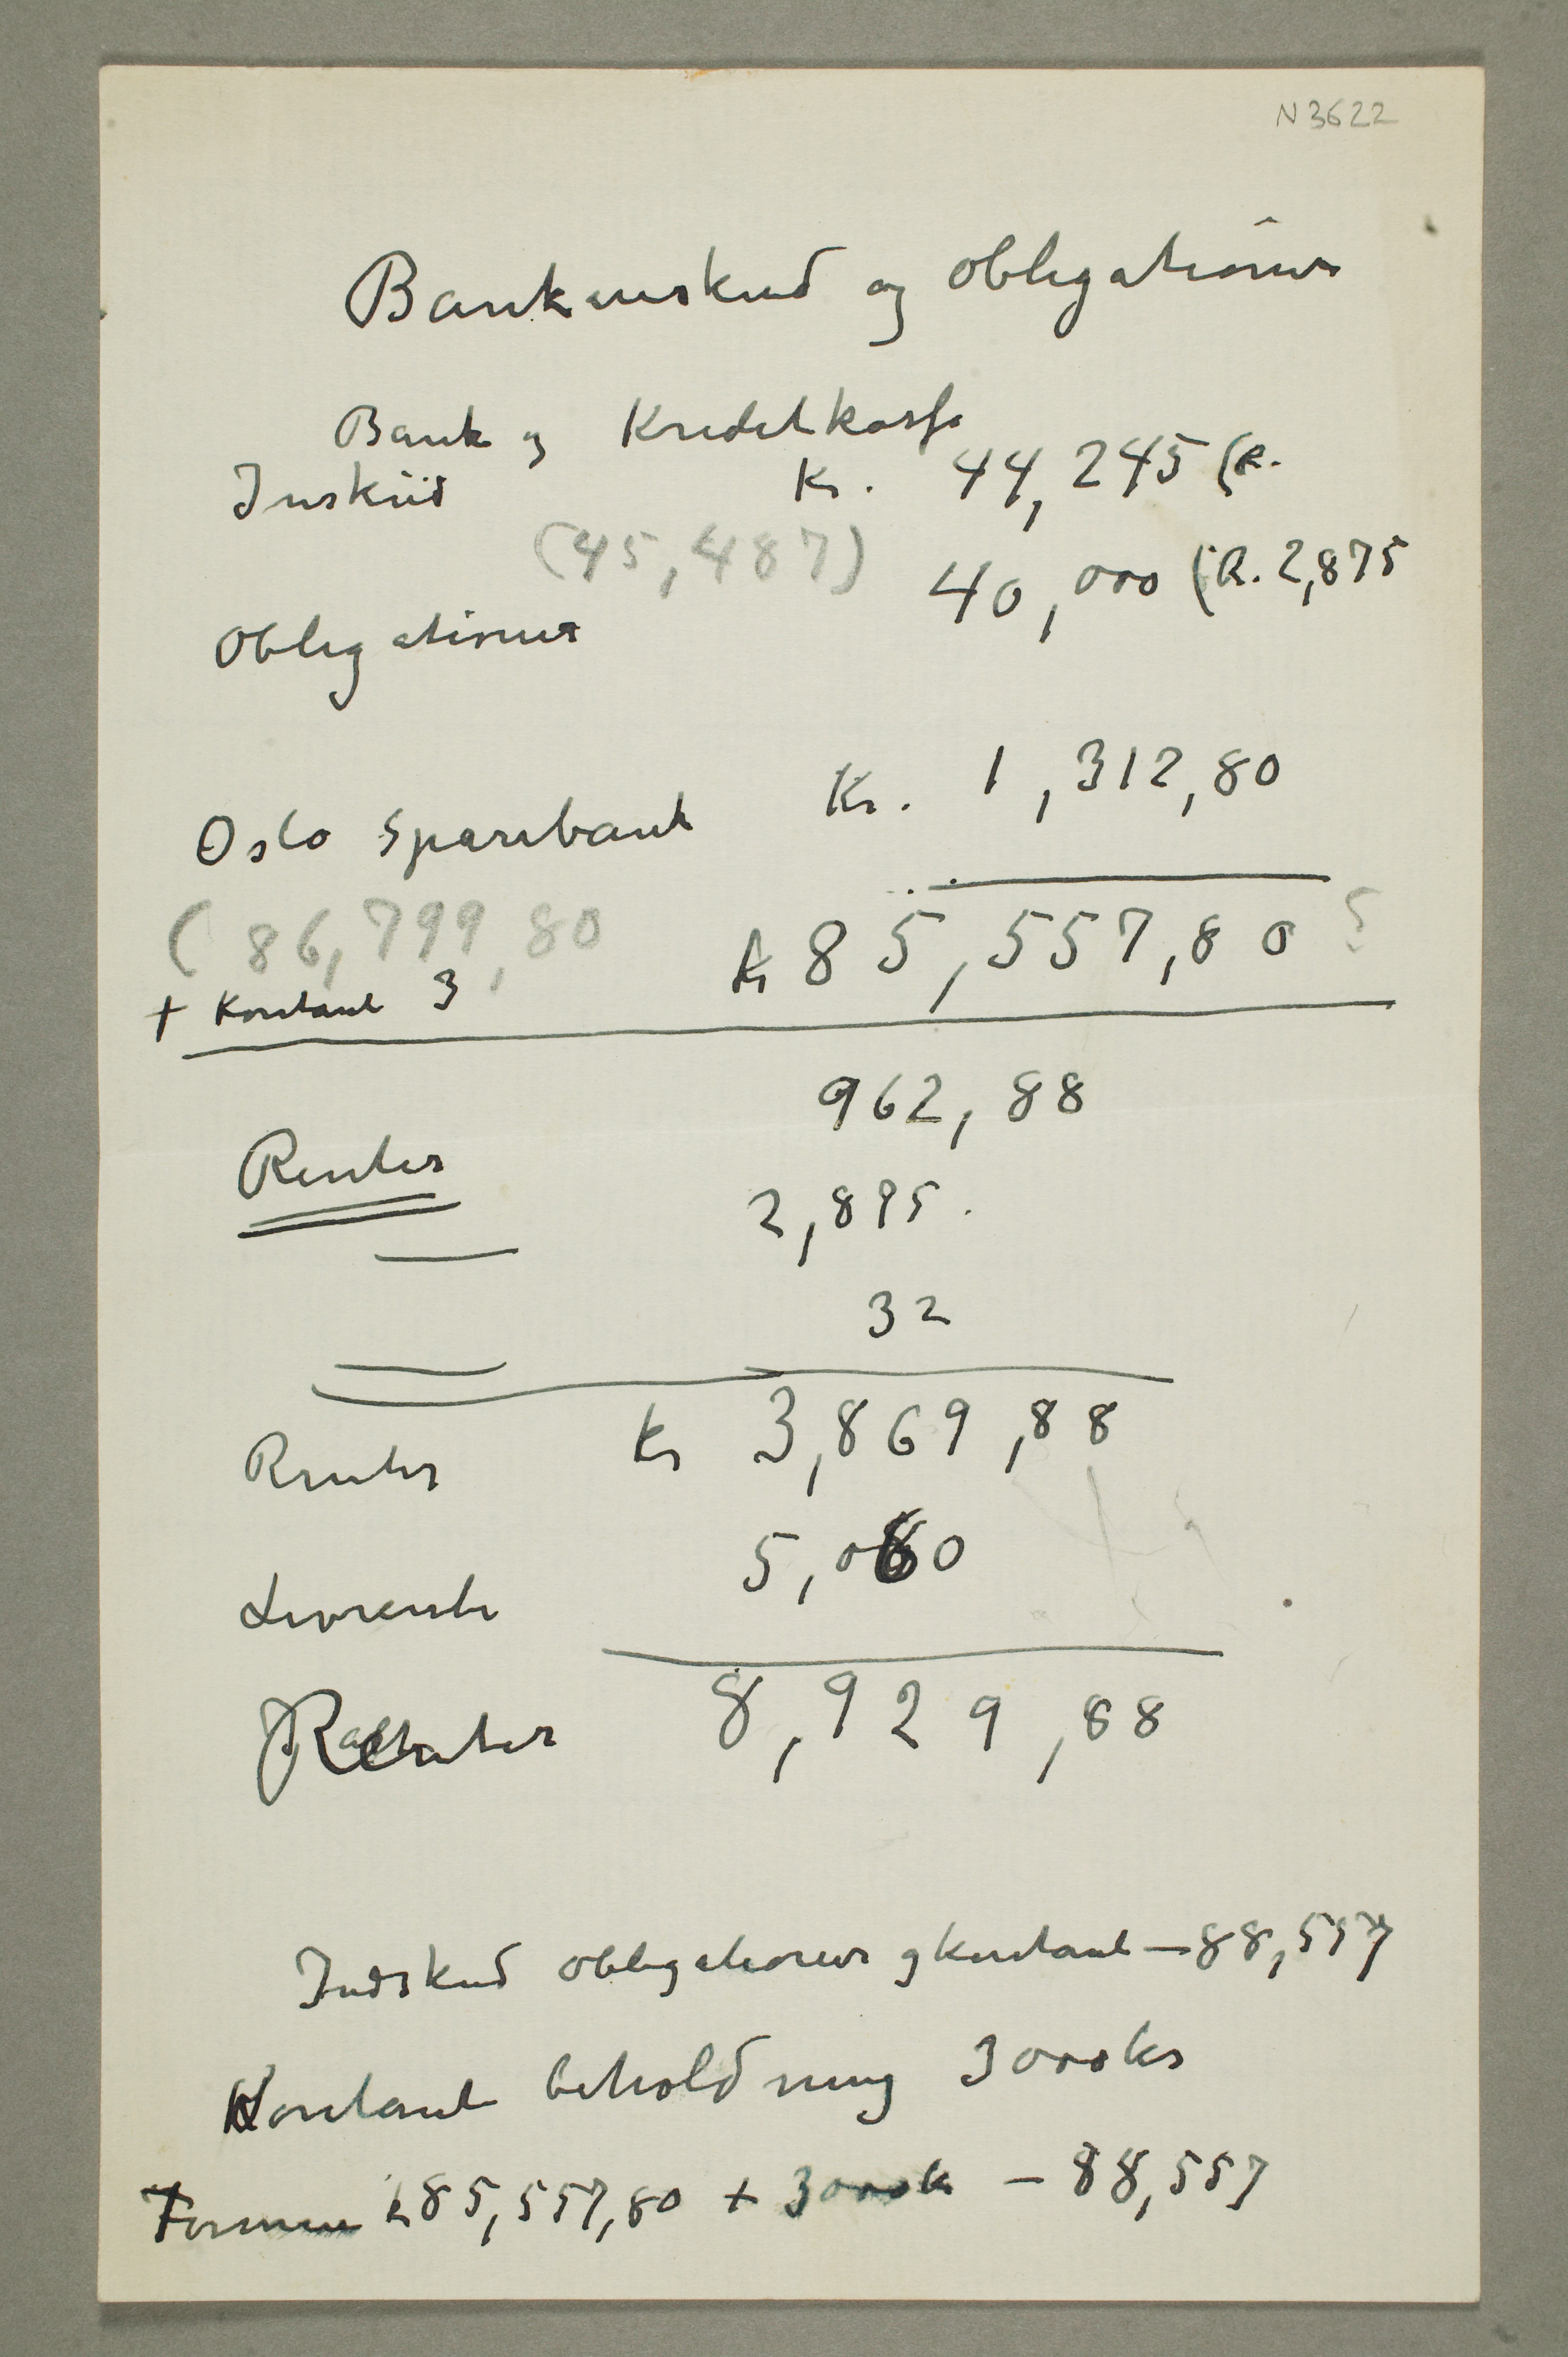 N 3622
Bankinskud og obligationer
Bank og Kreditkasse
Inskud Kr. 44,245 (R.
(45,487)
Obligationer 40,000 (R. 2,875
Oslo Sparebank Kr. 1,312,80
(86,799,80 Kr 85,557,80 ?
+ Kontant 3
Renter 962,88
— 2,895.
— 32
Renter Kr 3,869,88
Livrente 5,060
8,929,88
Indskud obligationer og Kontant — 88,557
Kontant beholdning 3000 kr
Formue k 85,557,80 + 3000 k – 88,557